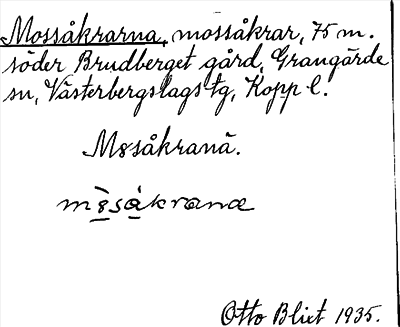 Mossåkrarna, mossåkrar, 75 m.
söder Brudberget gård, Grangärde
sn, Västerbergslags tg, Kopp l.
M8såkranä.
m8̀såkrana
Otto Blixt 1935.